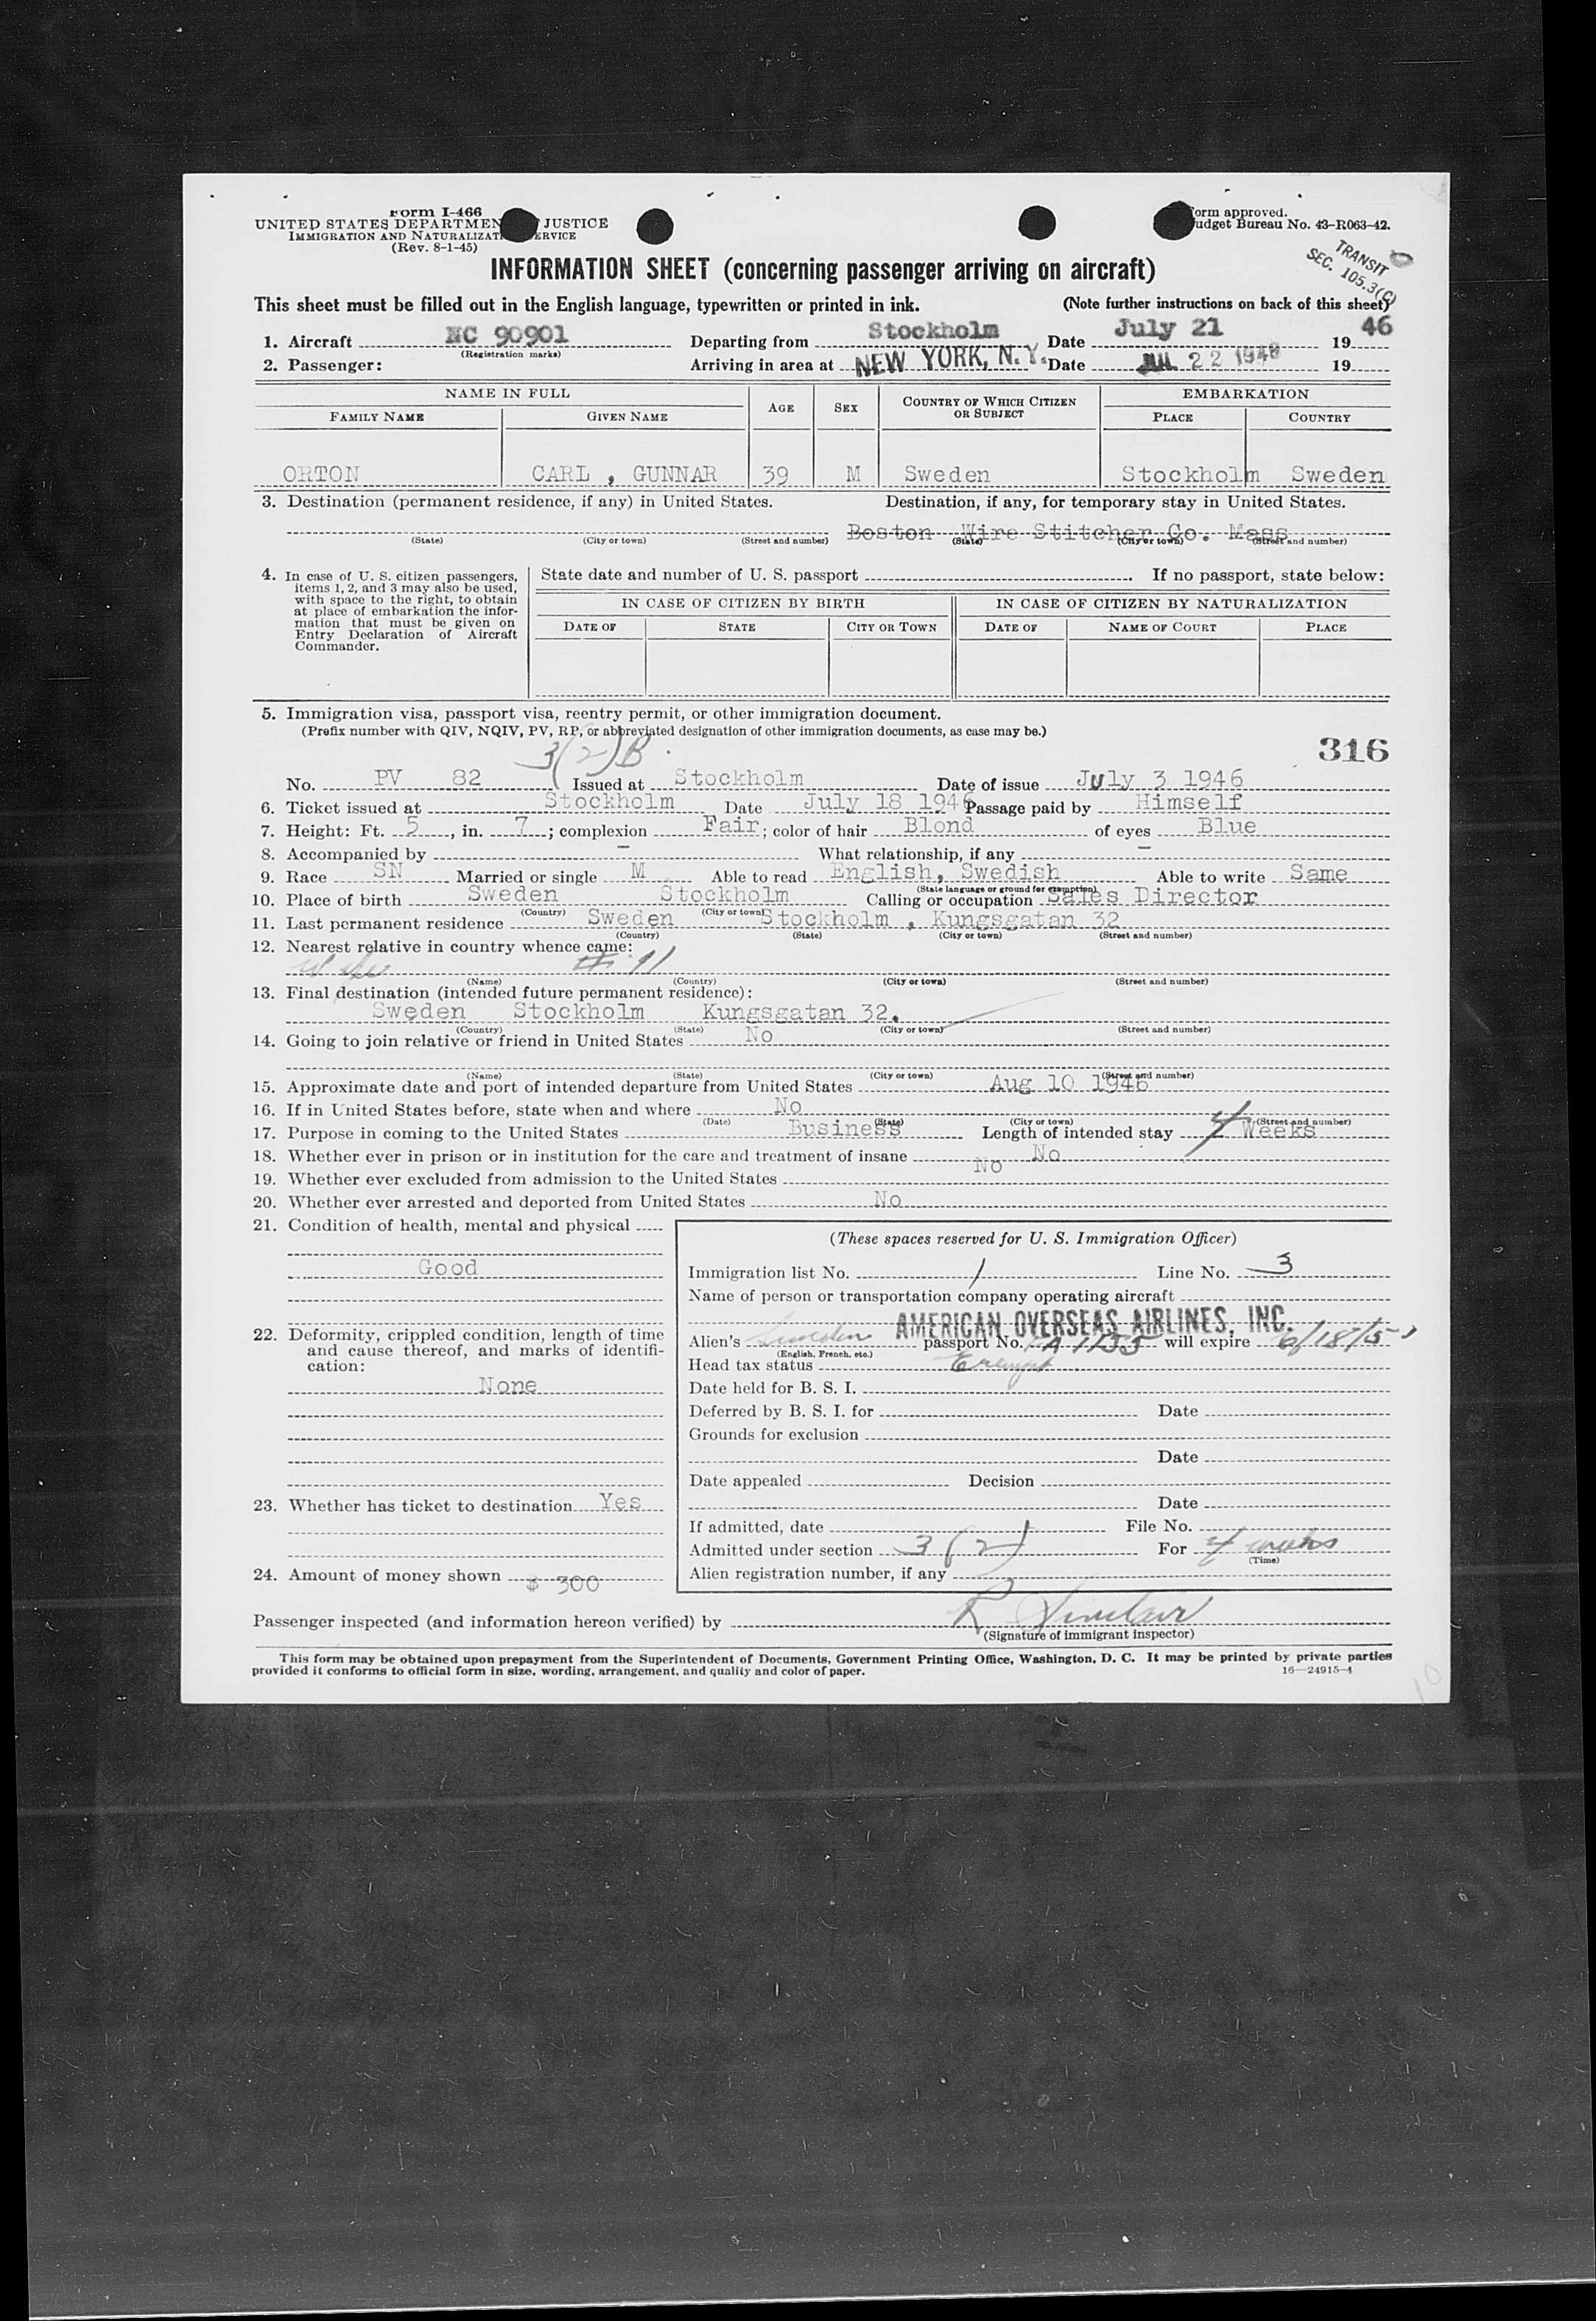 Form I-466
UNITED STATES DEPARTMEN JUSTICE
IMMIGRATION AND NATURALIZAT ERVICE
(Rev. 8-1-45)
orm approved.
udget Bureau No. 43-R063-42.
TRANSIT
SEC. 105.3(C)
INFORMATION SHEET (concerning passenger arriving on aircraft)
This sheet must be filled out in the English language, typewritten or printed in ink. (Note further instructions on back of this sheet)
1. Aircraft NC 90901 Departing from Stockholm Date July 21 1946
(Registration marks)
2. Passenger: Arriving in area at NEW YORK, N.Y. Date JUL 22 1946 19
NAME IN FULL AGE SEX COUNTRY OF WHICH CITIZEN OR SUBJECT EMBARKATION
FAMILY NAME GIVEN NAME PLACE COUNTRY
ORTON CARL , GUNNAR 39 M Sweden Stockholm Sweden
3. Destination (permanent residence, if any) in United States. Destination, if any, for temporary stay in United States.
Boston Wire Stitcher Co. Mass
(State) (City or town) (Street and number) (State) (City or town) (Street and number)
4. In case of U. S. citizen passengers, items 1, 2, and 3 may also be used, with space to the right, to obtain at place of embarkation the information that must be given on Entry Declaration of Aircraft Commander.
State date and number of U. S. passport . If no passport, state below:
IN CASE OF CITIZEN BY BIRTH IN CASE OF CITIZEN BY NATURALIZATION
DATE OF STATE CITY OR TOWN DATE OF NAME OF COURT PLACE
5. Immigration visa, passport visa, reentry permit, or other immigration document.
(Prefix number with QIV, NQIV, PV, RP, or abbreviated designation of other immigration documents, as case may be.)
3(2)B
316
No. PV 82 Issued at Stockholm Date of issue July 3 1946
6. Ticket issued at Stockholm Date July 18 1946 Passage paid by Himself
7. Height: Ft. 5, in. 7; complexion Fair; color of hair Blond of eyes Blue
8. Accompanied by - What relationship, if any -
9. Race SN Married or single M Able to read English, Swedish Able to write Same
(State language or ground for exemption)
10. Place of birth Sweden Stockholm Calling or occupation Sales Director
(Country) (City or town)
11. Last permanent residence Sweden Stockholm , Kungsgatan 32
(Country) (State) (City or town) (Street and number)
12. Nearest relative in country whence came:
Wife # 11
(Name) (Country) (City or town) (Street and number)
13. Final destination (intended future permanent residence):
Sweden Stockholm Kungsgatan 32.
(Country) (State) (City or town) (Street and number)
14. Going to join relative or friend in United States No
(Name) (State) (City or town) (Street and number)
15. Approximate date and port of intended departure from United States Aug 10 1946
16. If in United States before, state when and where No
(Date) (State) (City or town) (Street and number)
17. Purpose in coming to the United States Business Length of intended stay 4 Weeks
18. Whether ever in prison or in institution for the care and treatment of insane No
19. Whether ever excluded from admission to the United States No
20. Whether ever arrested and deported from United States No
21. Condition of health, mental and physical
Good
22. Deformity, crippled condition, length of time and cause thereof, and marks of identification:
None
23. Whether has ticket to destination Yes
24. Amount of money shown $ 300
(These spaces reserved for U. S. Immigration Officer)
Immigration list No. 1 Line No. 3
Name of person or transportation company operating aircraft
AMERICAN OVERSEAS AIRLINES, INC.
Alien's Sweden passport No. A 1155 will expire 6/18/5
(English, French, etc.)
Head tax status Exempt
Date held for B. S. I.
Deferred by B. S. I. for Date
Grounds for exclusion
Date
Date appealed Decision
Date
If admitted, date File No.
Admitted under section 3(2) For 4 weeks
(Time)
Alien registration number, if any
Passenger inspected (and information hereon verified) by R Sinclair
(Signature of immigrant inspector)
This form may be obtained upon prepayment from the Superintendent of Documents, Government Printing Office, Washington, D. C. It may be printed by private parties
provided it conforms to official form in size, wording, arrangement, and quality and color of paper.
16—24915-4
10